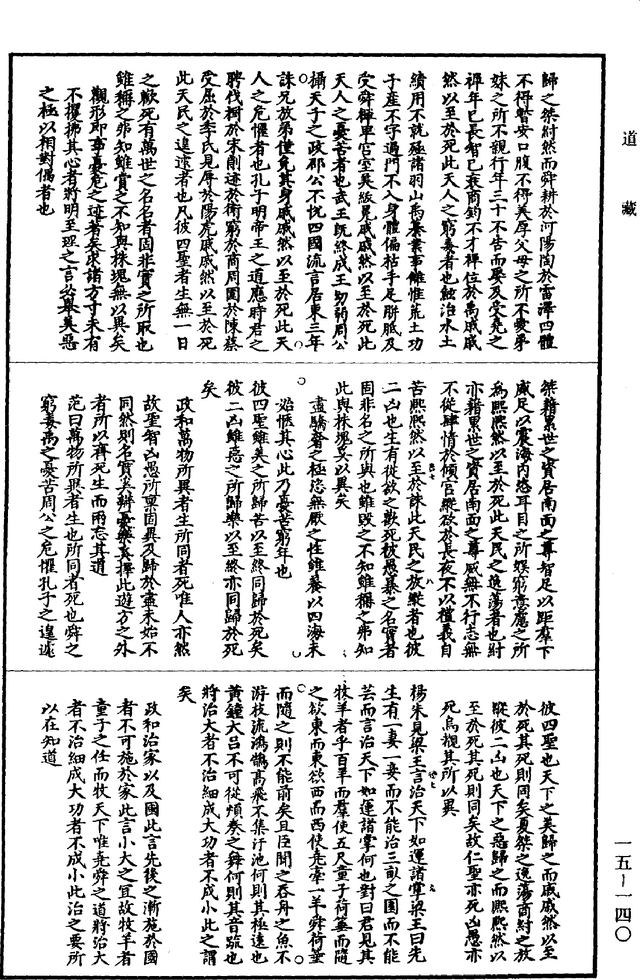 道藏
歸之桀紂然而舜耕於河陽陶於雷澤四體
不得暫安口腹不得美厚父母之所不愛弟
妹之所不親行年三十不告而娶及受堯之
禪年已長智已衰商鈞不才禪位於禹戚戚
然以至於死此天人之窮毒者也鯀治水土
績用不就殛諸羽山禹纂業事讎惟荒土功
子產不字過門不入身體偏枯手足胼胝及
受舜禪卑宮室美紱冕戚戚然以至於死此
天人之憂苦者也武王既終成王幼弱周公
攝天子之政邵公不悅四國流言居東三年
誅兄放弟僅免其身戚戚然以至於死此天
人之危懼者也孔子明帝王之道應時君之
聘伐樹於宋削迹於衛窮於商周圍於陳蔡
受屈於季氏見辱於陽虎戚戚然以至於死
此天民之遑遽者也凡彼四聖者生無一日
之歡死有萬世之名名者固非實之所取也
雖稱之弗知雖賞之不知與株塊無以異矣
觀形即事憂危之迹著矣求諸方寸未有
不攖拂其心者將明至理之言必舉美惡
之極以相對偶者也
桀藉累世之資居南面之尊智足以距羣下
威足以震海內恣耳目之所娛窮意慮之所
為熙熙然以至於死此天民之逸蕩者也紂
亦藉累世之資居南面之尊威無不行志無
不從肆情於傾宮縱欲於長夜不以禮義自
苦熙熙然以至於誅此天民之放縱者也彼
二凶也生有從欲之歡死被愚暴之名實者
固非名之所與也雖毀之不知雖稱之弗知
此與株塊奚以異矣
盡驕奢之極恣無厭之性雖養以四海未
始愜其心此乃憂苦窮年也
彼四聖雖美之所歸苦以至終同歸於死矣
彼二凶雖惡之所歸樂以至終亦同歸於死
矣
政和萬物所異者生所同者死唯人亦然
故聖智凶愚所稟固異及歸於盡未始不
同然則名實奚辨憂樂奚擇此遊方之外
者所以齊死生而兩忘其道
范曰萬物所異者生也所同者死也舜之
窮毒禹之憂苦周公之危懼孔子之遑遽
彼四聖也天下之美歸之而戚戚然以至
於死其死則同矣夏桀之逸蕩商紂之放
縱彼二凶也天下之惡歸之而熙熙然以
至於死其死則同矣故仁聖亦死凶愚亦
死烏覩其所以異
楊朱見梁王言治天下如運諸掌梁王曰先
生有一妻一妾而不能治三畝之園而不能
芸而言治天下如運諸掌何也對曰君見其
牧羊者乎百羊而羣使五尺童子荷箠而隨
之欲東而東欲西而西使堯牽一羊舜荷箠
而隨之則不能前矣且臣聞之吞舟之魚不
游枝流鴻鵠高飛不集汙池何則其極遠也
黃鐘大呂不可從煩奏之舞何則其音疏也
將治大者不治細成大功者不成小此之謂
矣
政和治家以及國此言先後之漸施於國
者不可施於家此言小大之宜故牧羊者
童子之任而牧天下唯堯舜之道將治大
者不治細成大功者不成小此治之要所
以在知道
一五－一四〇